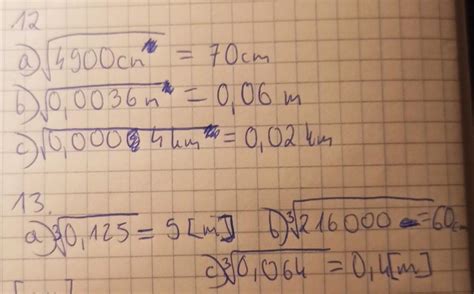 12
a) √4900cm = 70cm
b) √0,0036m = 0,06 m
c) √0,0004km = 0,02km
13.
a) ³√0,125 = 5 [m] b) ³√216000 = 60cm
c) ³√0,064 = 0,4[m]